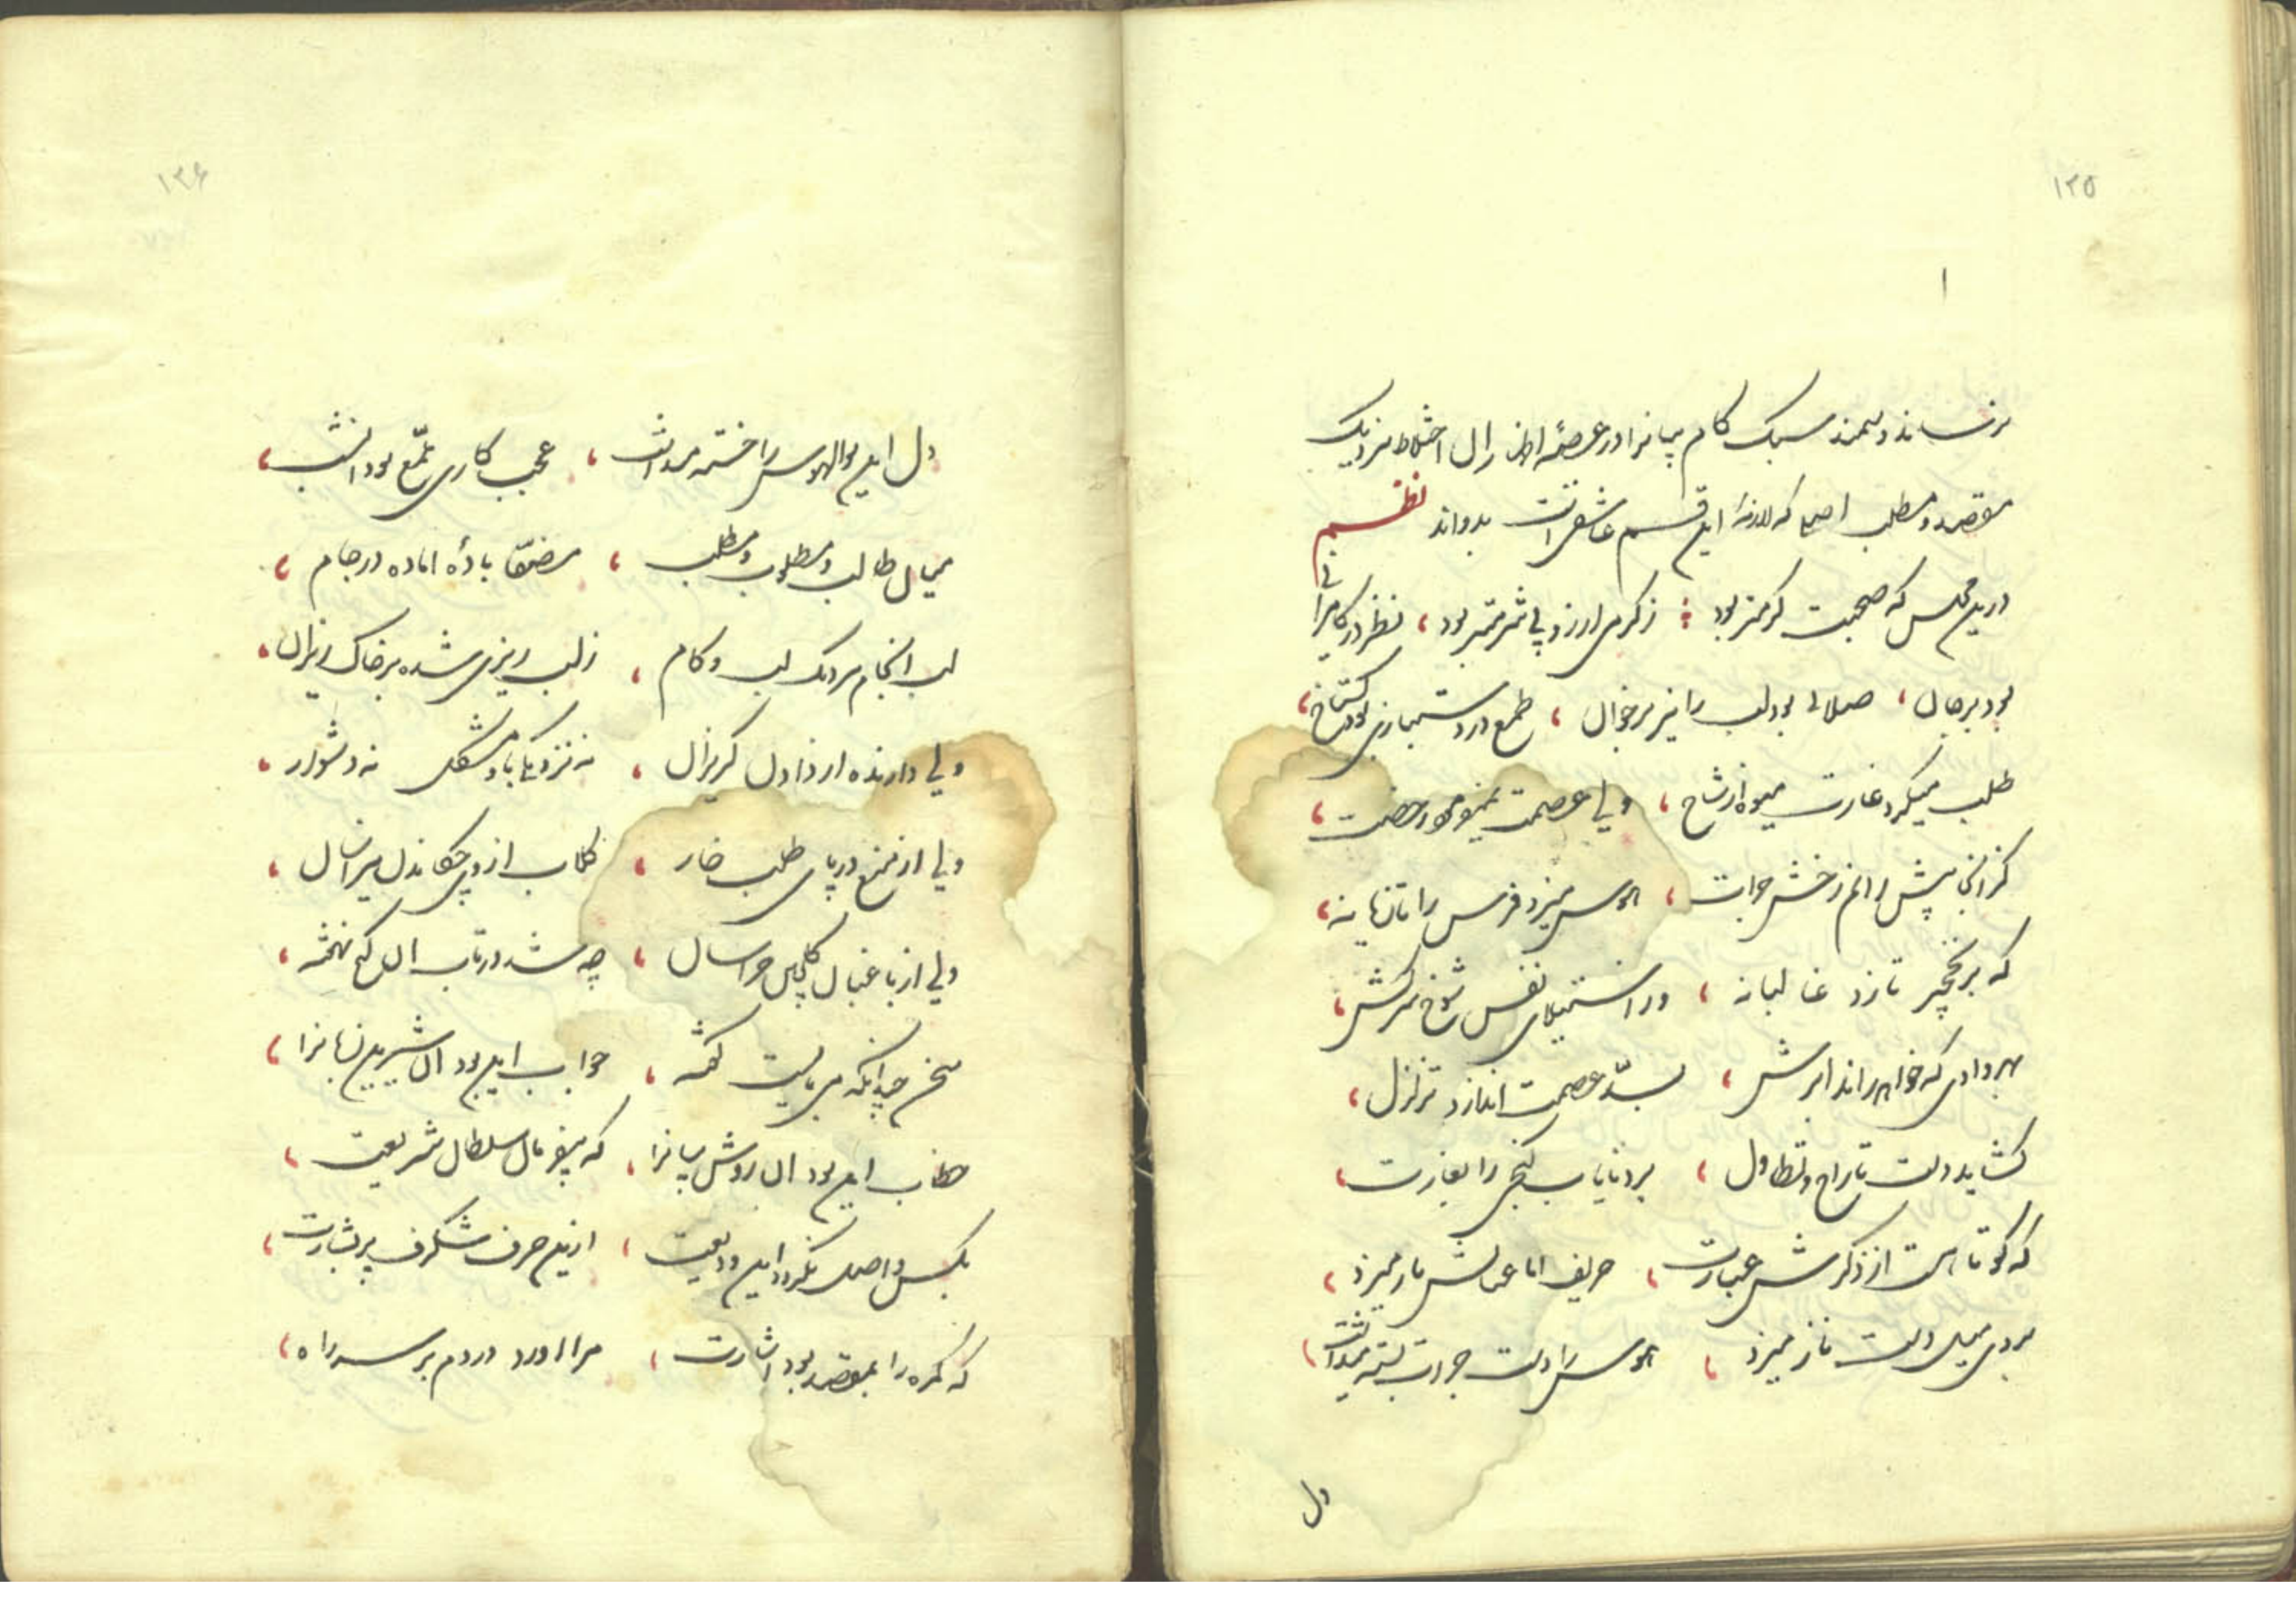 ۱۲۵
۱
سبک کام بیانرا در عرصهٔ اختلاط نزدیک
مقصد و مطلب اصلی که لازمهٔ این قسم عاشقی است بدواند نظم
درین مجلس که صحبت گرمتر بود ؛ ز گرمی ارزو پی ثمر بود ، نظر در کامرانی
بود بر جان ، صلائی بود لب را نیز بر خوان ، طمع در دستبازی بود گستاخ ،
طلب میکرد غارت میوه از شاخ ، ولی عصمت نمیفرمود رخصت ،
کز انجا پیش رانم رخش جرات ، هوس میزد فرس را تازیانه ،
که بر نخچیر تازد غالبانه ، در استیلای نفس شوخ سرکش ،
بهر وادی که خواهد راند ابرش ، بسدّ عصمت اندازد تزلزل ،
گشاید دست تاراج و تطاول ، برد نایاب گنجی را بغارت ،
که کوتاهست از ذکرش عبارت ، حریف اما عنانش باز میزد ،
بروی میل دست ناز میزد ، هوس را دست جرات بسته میداشت ،
دل
۱۲۶
دل این بوالهوس را خسته میداشت ، عجب کاری تمتّع بود انشب ،
میان طالب و مطلوب و مطلب ، مصفّا بادهٔ اماده در جام ،
لب انجام نزدیک لب و کام ، ز لب ریزی شده بر خاک ریزان ،
ولی دارنده از دادن گریزان ، نه نزدیکی باو مشکل نه دشوار ،
ولی از منع در پای طلب خار ، گلاب از وی چکاندن میر اسان ،
ولی از باغبان گلچین هراسان ، چه شد در تاب ان گنج نهفته ،
سخن چندانکه می بایست گفته ، جواب این بود ان شیرین زبانرا ،
خطاب این بود ان روشن بیانرا ، که بیفرمان سلطان شریعت ،
بکس واصل نگردد این ودیعت ، ازین حرف شگرف پر بشارت ،
که گمره را بمقصد بود اشارت ، مرا اورد دردم بر سر راه ،